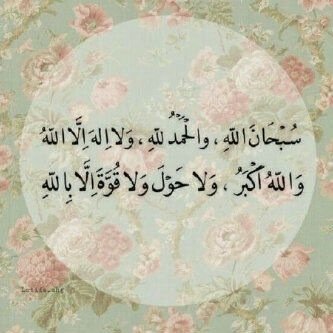 سُبْحَانَ اللّٰهِ ، والْحَمْدُ للّٰهِ ، وَلا اِلٰهَ اِلَّا اللّٰهُ
وَاللّٰهُ اَكْبَرُ ، وَلا حَوْلَ وَلا قُوَّةَ اِلَّا بِاللّٰهِ